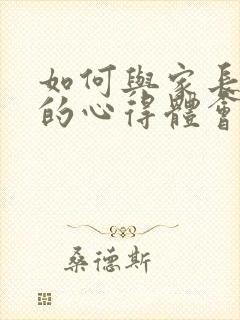 如何與家長
的心得體會
桑德斯